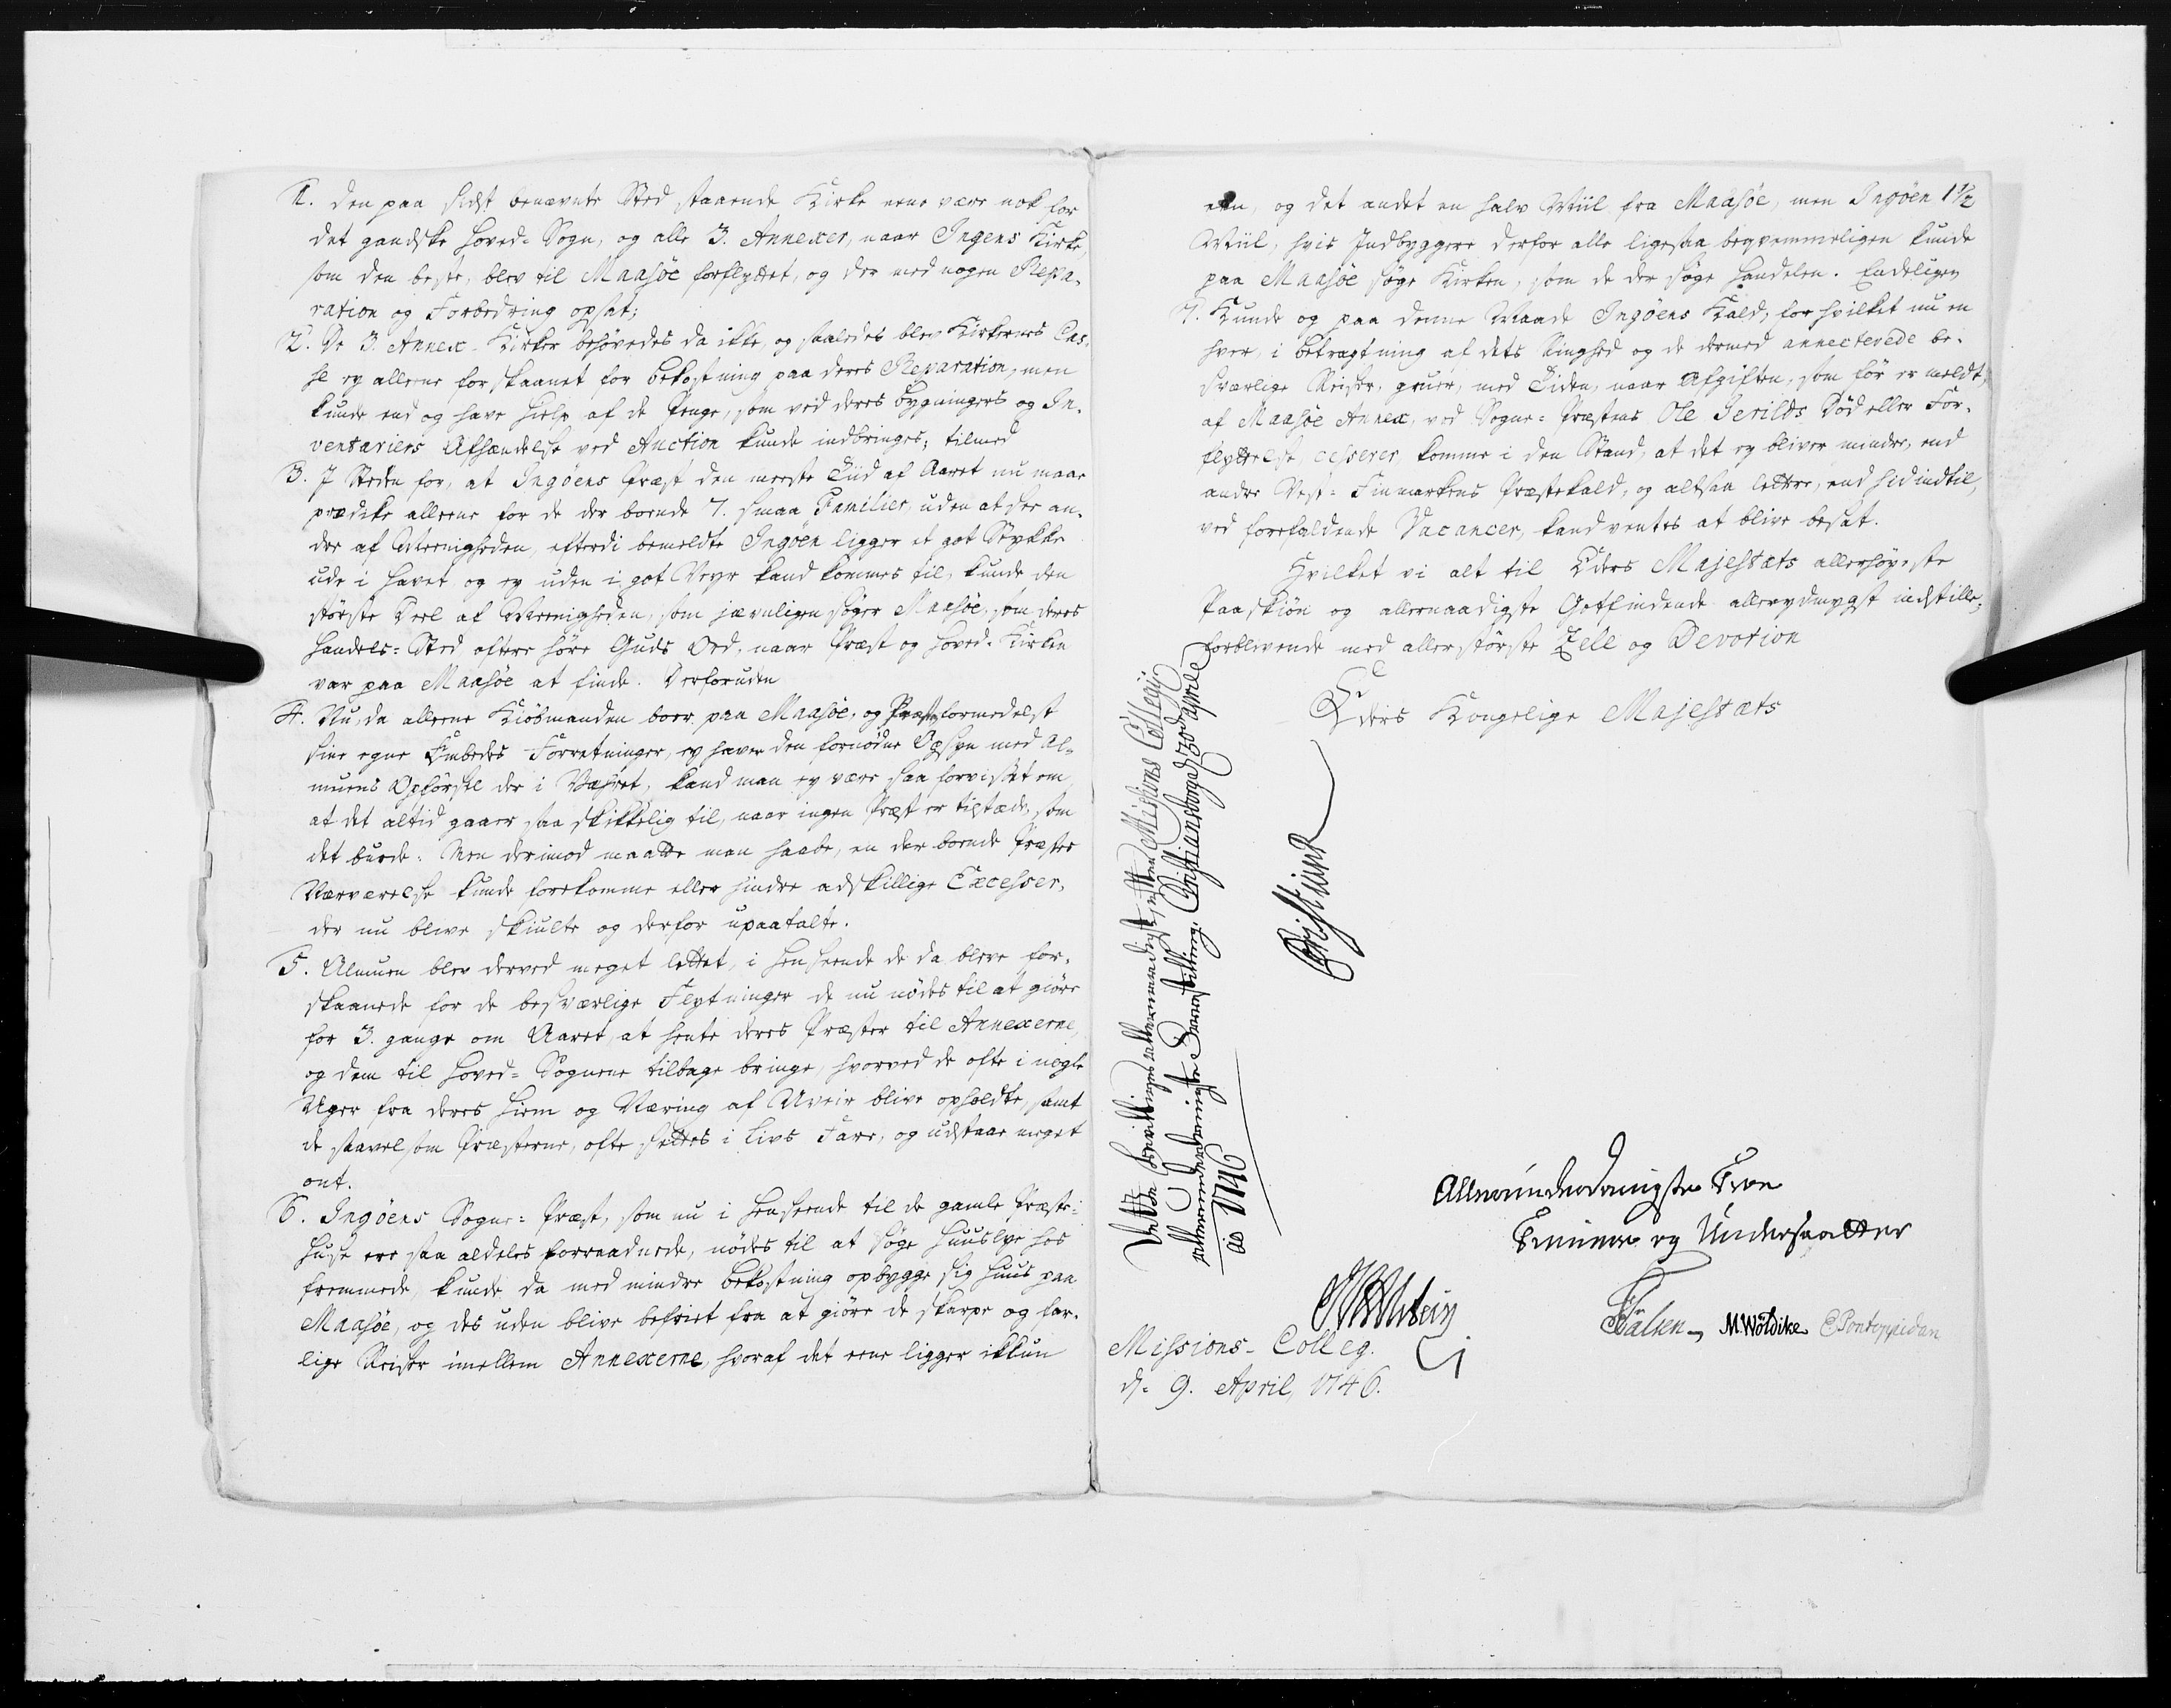 1. den paa sidst benævnte Sted staaende Kirke eene være nok for
det gandske Hoved-Sogn, og alle 3. Annexer, naar Ingens Kirke,
som den beste, blev til Maasöe forflyttet, og der med nogen Repa-
ration og Forbedring opsat;
2. De 3. Annex-Kirker behövedes da ikke, og saaledes blev Kirkernes Cas-
se ey alleene forskaanet for Bekostning paa deres Reparation, men
kunde end og have Hielp af de Penge, som ved deres Bygningers og In-
ventariers Afhændelse ved Auction kunde indbringes; tilmed
3. I Steden for, at Ingöens Præst den meeste Tiid af Aaret nu maae
prædike alleene for de der boende 7. smaa Familier, uden at see an-
dre af Meenigheden, efterdi bemeldte Ingöen ligger et got Stykke
ude i Havet og ey uden i got Veyr kand kommes til, kunde den
störste Deel af Meenigheden, som jævnligen söger Maasöe, som deres
Handels-Sted oftere höre Guds Ord, naar Præst og Hoved-Kirken
var paa Maasöe at finde. Desforuden
4. Nu, da alleene Kiöbmanden boer paa Maasöe, og Præsten formedelst
sine egne Embeds Forretninger, ey haver den fornödne Opsyn med Al-
muens Opförsel der i Været, kand man ey være saa forvisset om
at det altid gaaer saa skikkelig til, naar ingen Præst er tilstæde, som
det burde. Men derimod maatte man haabe, en der boende Præstes
Nærværelse kunde forekomme eller hindre adskillige Excesser,
der nu blive skiulte og derfor upaatalte.
5. Almuen blev derved meget lettet, i Henseende de da bleve for-
skaanede for de besværlige Flytninger de nu nödes til at giöre
for 3. gange om Aaret at hente deres Præster til Annexerne,
og dem til Hoved-Sognene tilbage bringe, hvorved de ofte i nogle
Uger fra deres Hiem og Næring af Uveir blive opholdte, samt
de saavelsom Præsterne, ofte settes i Livs Fare, og udstaae meget
ont.
6. Ingöens Sogne-Præst, som nu i Henseende til de gamle Præste-
Huse ere saa aldeles forraadnede, nödes til at söge Huuslye hos
fremmede, kunde da med mindre Bekostning opbygge sig Huus paa
Maasöe, og des uden blive befriet fra at giöre de skarpe og far-
lige Reiser imellem Annexerne, hvoraf det eene ligger ikkun
een, og det andet en halv Miil fra Maasöe, men Ingöen 1 1/2
Miil, hvis Indbyggere derfor alle ligesaa beqvemmeligen kunde
paa Maasöe söge Kirken, som de der söge Handelen. Endeligen
7. Kunde og paa denne Maade Ingöens Kald, for hvilket nu en
hver, i betragtning af dets Ringhed og de dermed annecterede be-
sværlige Reiser, gruer, med Tiden, naar Afgiften, som för er meldt,
af Maasöe Annex, ved Sogne-Præstens Ole Jerilds Död eller For-
flyttelse, cesserer, komme i den Stand, at det ey bliver mindre, end
andre Vest-Finmarkens Præstekald, og altsaa lettere, end hid indtil,
ved forefaldende Vacancer, kand ventes at blive besat.
Hvilket vi alt til Eders Majestæts allerhöyeste
Paaskiön og allernaadigste Gotfindende allerydmygst indstille,
forblivende med allerstörste Zele og Devotion
Eders Kongelige Majestæts
Dette bevilliges allernaadigst, efter Missions Collegij
allerunderdanigste Forestilling. Christiansborg d. 30 April
ao 1746
Christian R
Allerunderdanigste Troe
Tienere og Undersaatter
JLvHolstein
Falsen
M. Wöldike
E Pontoppidan
Missions-Colleg.
d. 9. April, 1746.